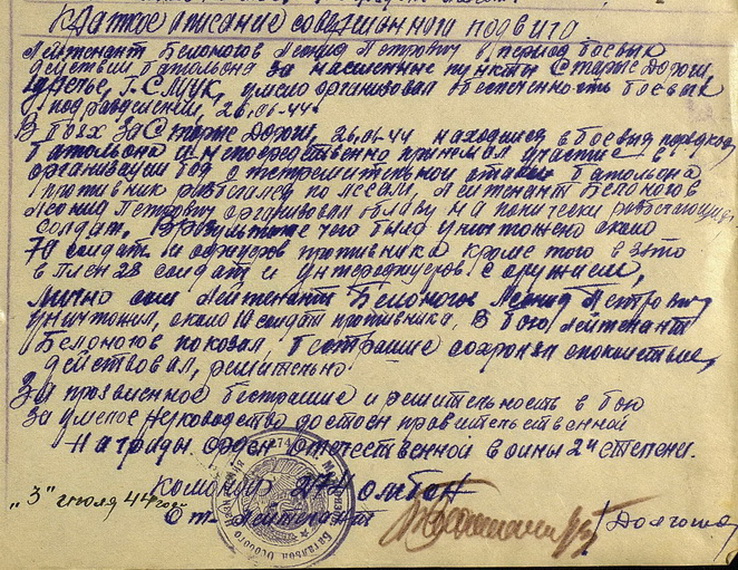 Краткое описание совершонного подвига
Лейтенант Белоногов Леонид Петрович в период боевых
действий баталь​она за населенные пункты Старые Дороги,
г. СЛУЦК, умело организовал обеспеченность боевых
подразделений, 26.06.44.
В боях за Старые Дороги, 26.06.44 находился в боевых порядках
батальона и непосредственно принемал участие в
организации боя стремительной атаки батальона
противник разбегался по лесам, Лейтенант Белоногов
Леонид Петрович организовал облаву на панически работающих
солдат. В результате чего было уничтожено около
70 солдат и офицеров противника кроме того взято
в плен 28 солдат и унтерофицеров с оружием,
Лично сам лейтенант Белоногов Леонид Петрович
уничтожил, около 10 солдат противника. В бою лейтенант
Белоногов показал, бестрашие сохраняя спокойствие,
действовал, решительно
За проявленное бестрашие и решительность в бою
за умелое руководство достоен правительственной
Награды орден отечественной войны 2й степени.
Командир 274 ОМБОН
Ст. Лейтенант
"3" июля 44 год